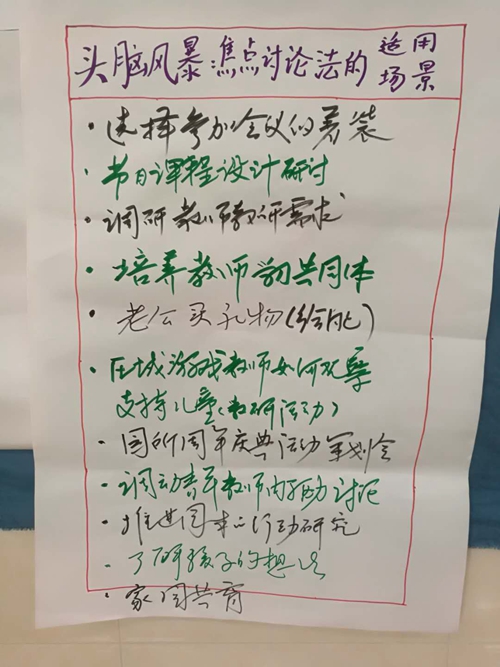 头脑风暴:焦点讨论法的适用场景
·选择参加会议的着装
·节日课程设计研讨
·调研教师教研需求
·培养教师学习共同体
·老公买礼物(给她)
·区域游戏教师如何观察
支持儿童(教研活动)
·园所周年庆典活动筹划会
·调动青年教师内驱力讨论
·推进园本化行动研究
·了解孩子的想法
·家园共育